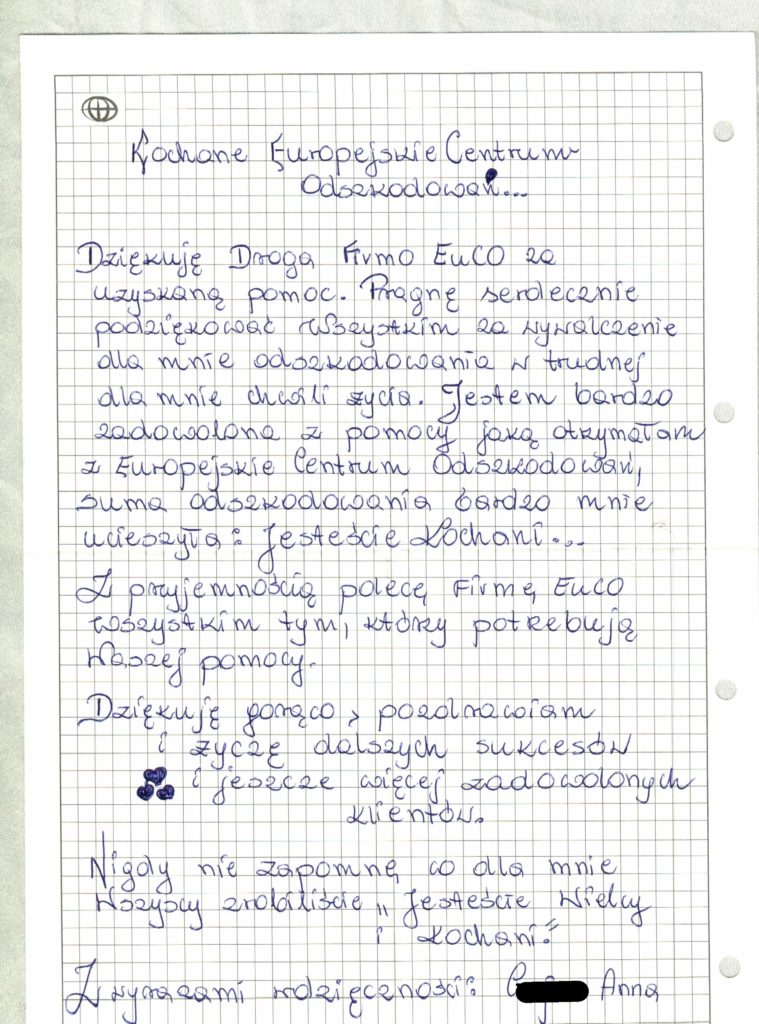 Kochane Europejskie Centrum
Odszkodowań...
Dziękuję Droga Firmo EuCO za
uzyskaną pomoc. Pragnę serdecznie
podziękować Wszystkim za wywalczenie
dla mnie odszkodowania w trudnej
dla mnie chwili życia. Jestem bardzo
zadowolona z pomocy jaką otrymałam
z Europejskie Centrum Odszkodowań,
suma odszkodowania bardzo mnie
ucieszyła: Jesteście Kochani...
Z przyjemnością polecę Firmę EuCO
wszystkim tym, którzy potrebują
Waszej pomocy.
Dziękuję gorąco, pozdrawiam
i życzę dalszych sukcesów
i jeszcze więcej zadowolonych
klientów.
Nigdy nie zapomnę co dla mnie
Wszyscy zrobiliście „Jesteście Wielcy
i Kochani."
Z wyrazami wdzięczności: Anna